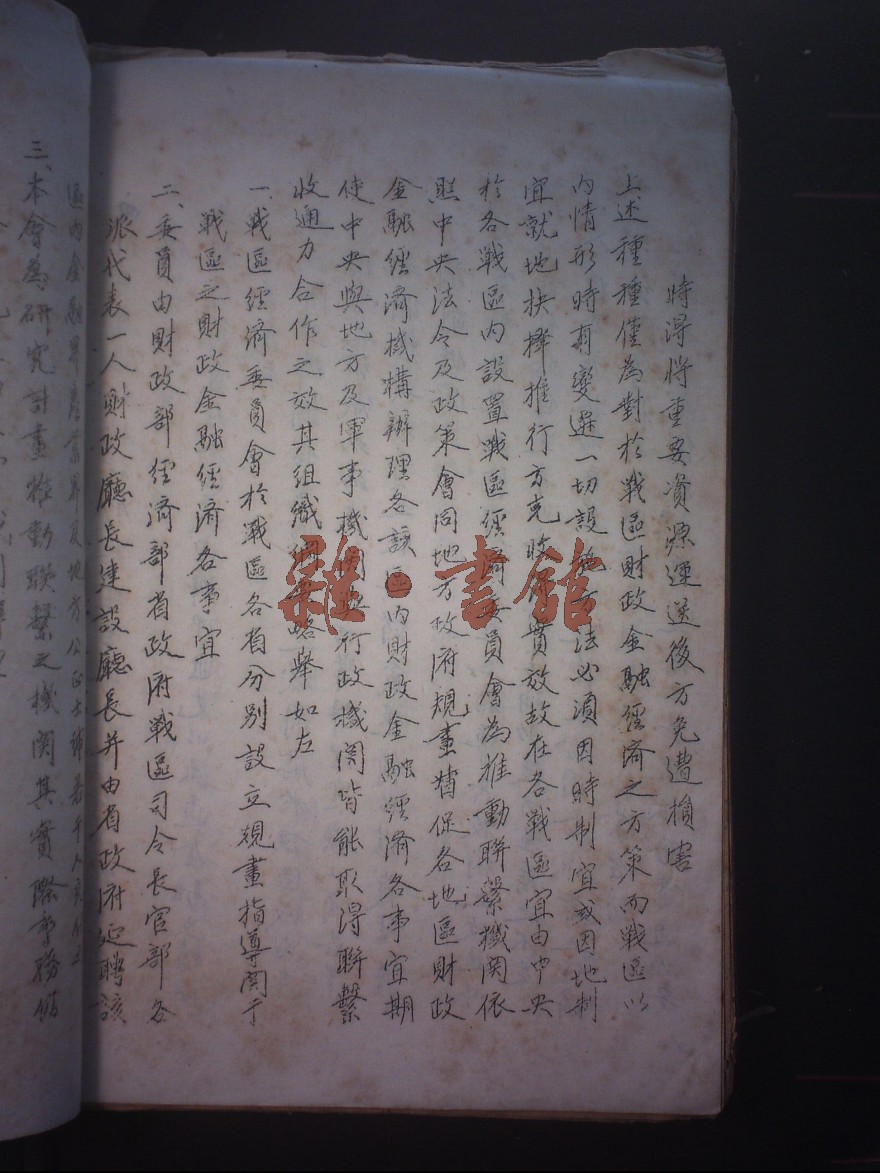 時得將重要資源運送後方免遭損害
上述種種僅為對於战區財政金融經济之方策而战區以
内情形時有變遷一切設施方法必須因時制宜或因地制
宜就地抉擇推行方克收實效故在各战區宜由中央
於各战區内設置战區經济委員會為推動联繫機関依
照中央法令及政策會同地方政府規畫督促各地區財政
金融經济機構辦理各該區内財政金融經济各事宜期
使中央與地方及軍事機関與行政機関皆能取得聯繫
收通力合作之效其組織略舉如左
一、战區經济委員會於战區各省分別設立規畫指導関于
战區之財政金融經济各事宜
二、委員由財政部經济部省政府战區司令長官部各
派代表一人財政廳長建設廳長并由省政府延聘該
區内金融界產業界及地方公正士紳若干人充任之
三、本會為研究計畫推動联繫之機関其實際事務仍
雜·書館